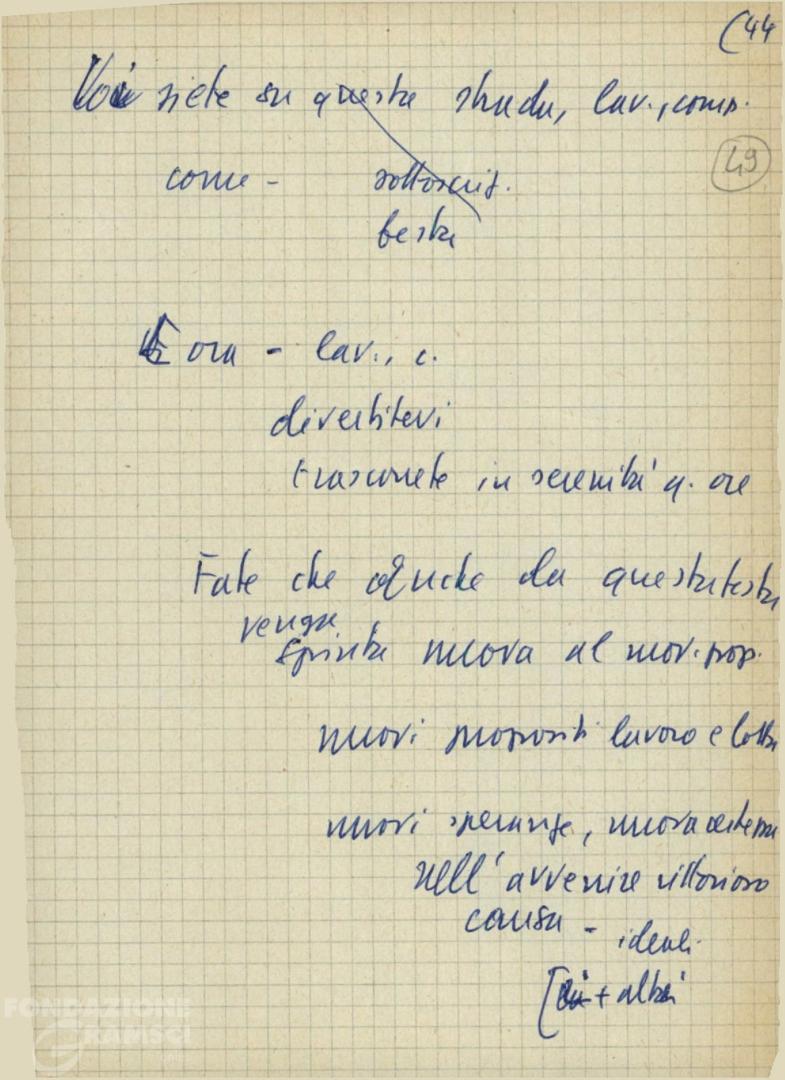 (44
Voi siete su questa strada, lav., comp.
49
come - sottoscriz.
festa
E ora - lav., c.
divertitevi
trascorrete in serenità q. ore
Fate che anche da questa festa
venga
spinta nuova al mov. pop.
nuovi propositi lavoro e lotta
nuovi speranze, nuova certezza
nell'avvenire vittorioso
causa - ideali.
[ + alti
FONDAZIONE
GRAMSCI